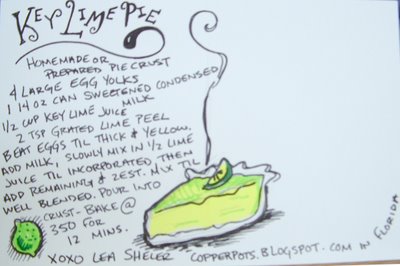 KEY LIME PIE
HOMEMADE OR
PREPARED PIE CRUST
4 LARGE EGG YOLKS
1 14 OZ CAN SWEETENED CONDENSED
MILK
1/2 CUP KEY LIME JUICE
2 TSP GRATED LIME PEEL
BEAT EGGS TIL THICK & YELLOW.
ADD MILK, SLOWLY MIX IN 1/2 LIME
JUICE TIL INCORPORATED THEN
ADD REMAINING & ZEST. MIX TIL
WELL BLENDED. POUR INTO
CRUST - BAKE @
350 FOR
12 MINS.
XOXO LEA SHELER COPPERPOTS.BLOGSPOT.COM IN FLORIDA